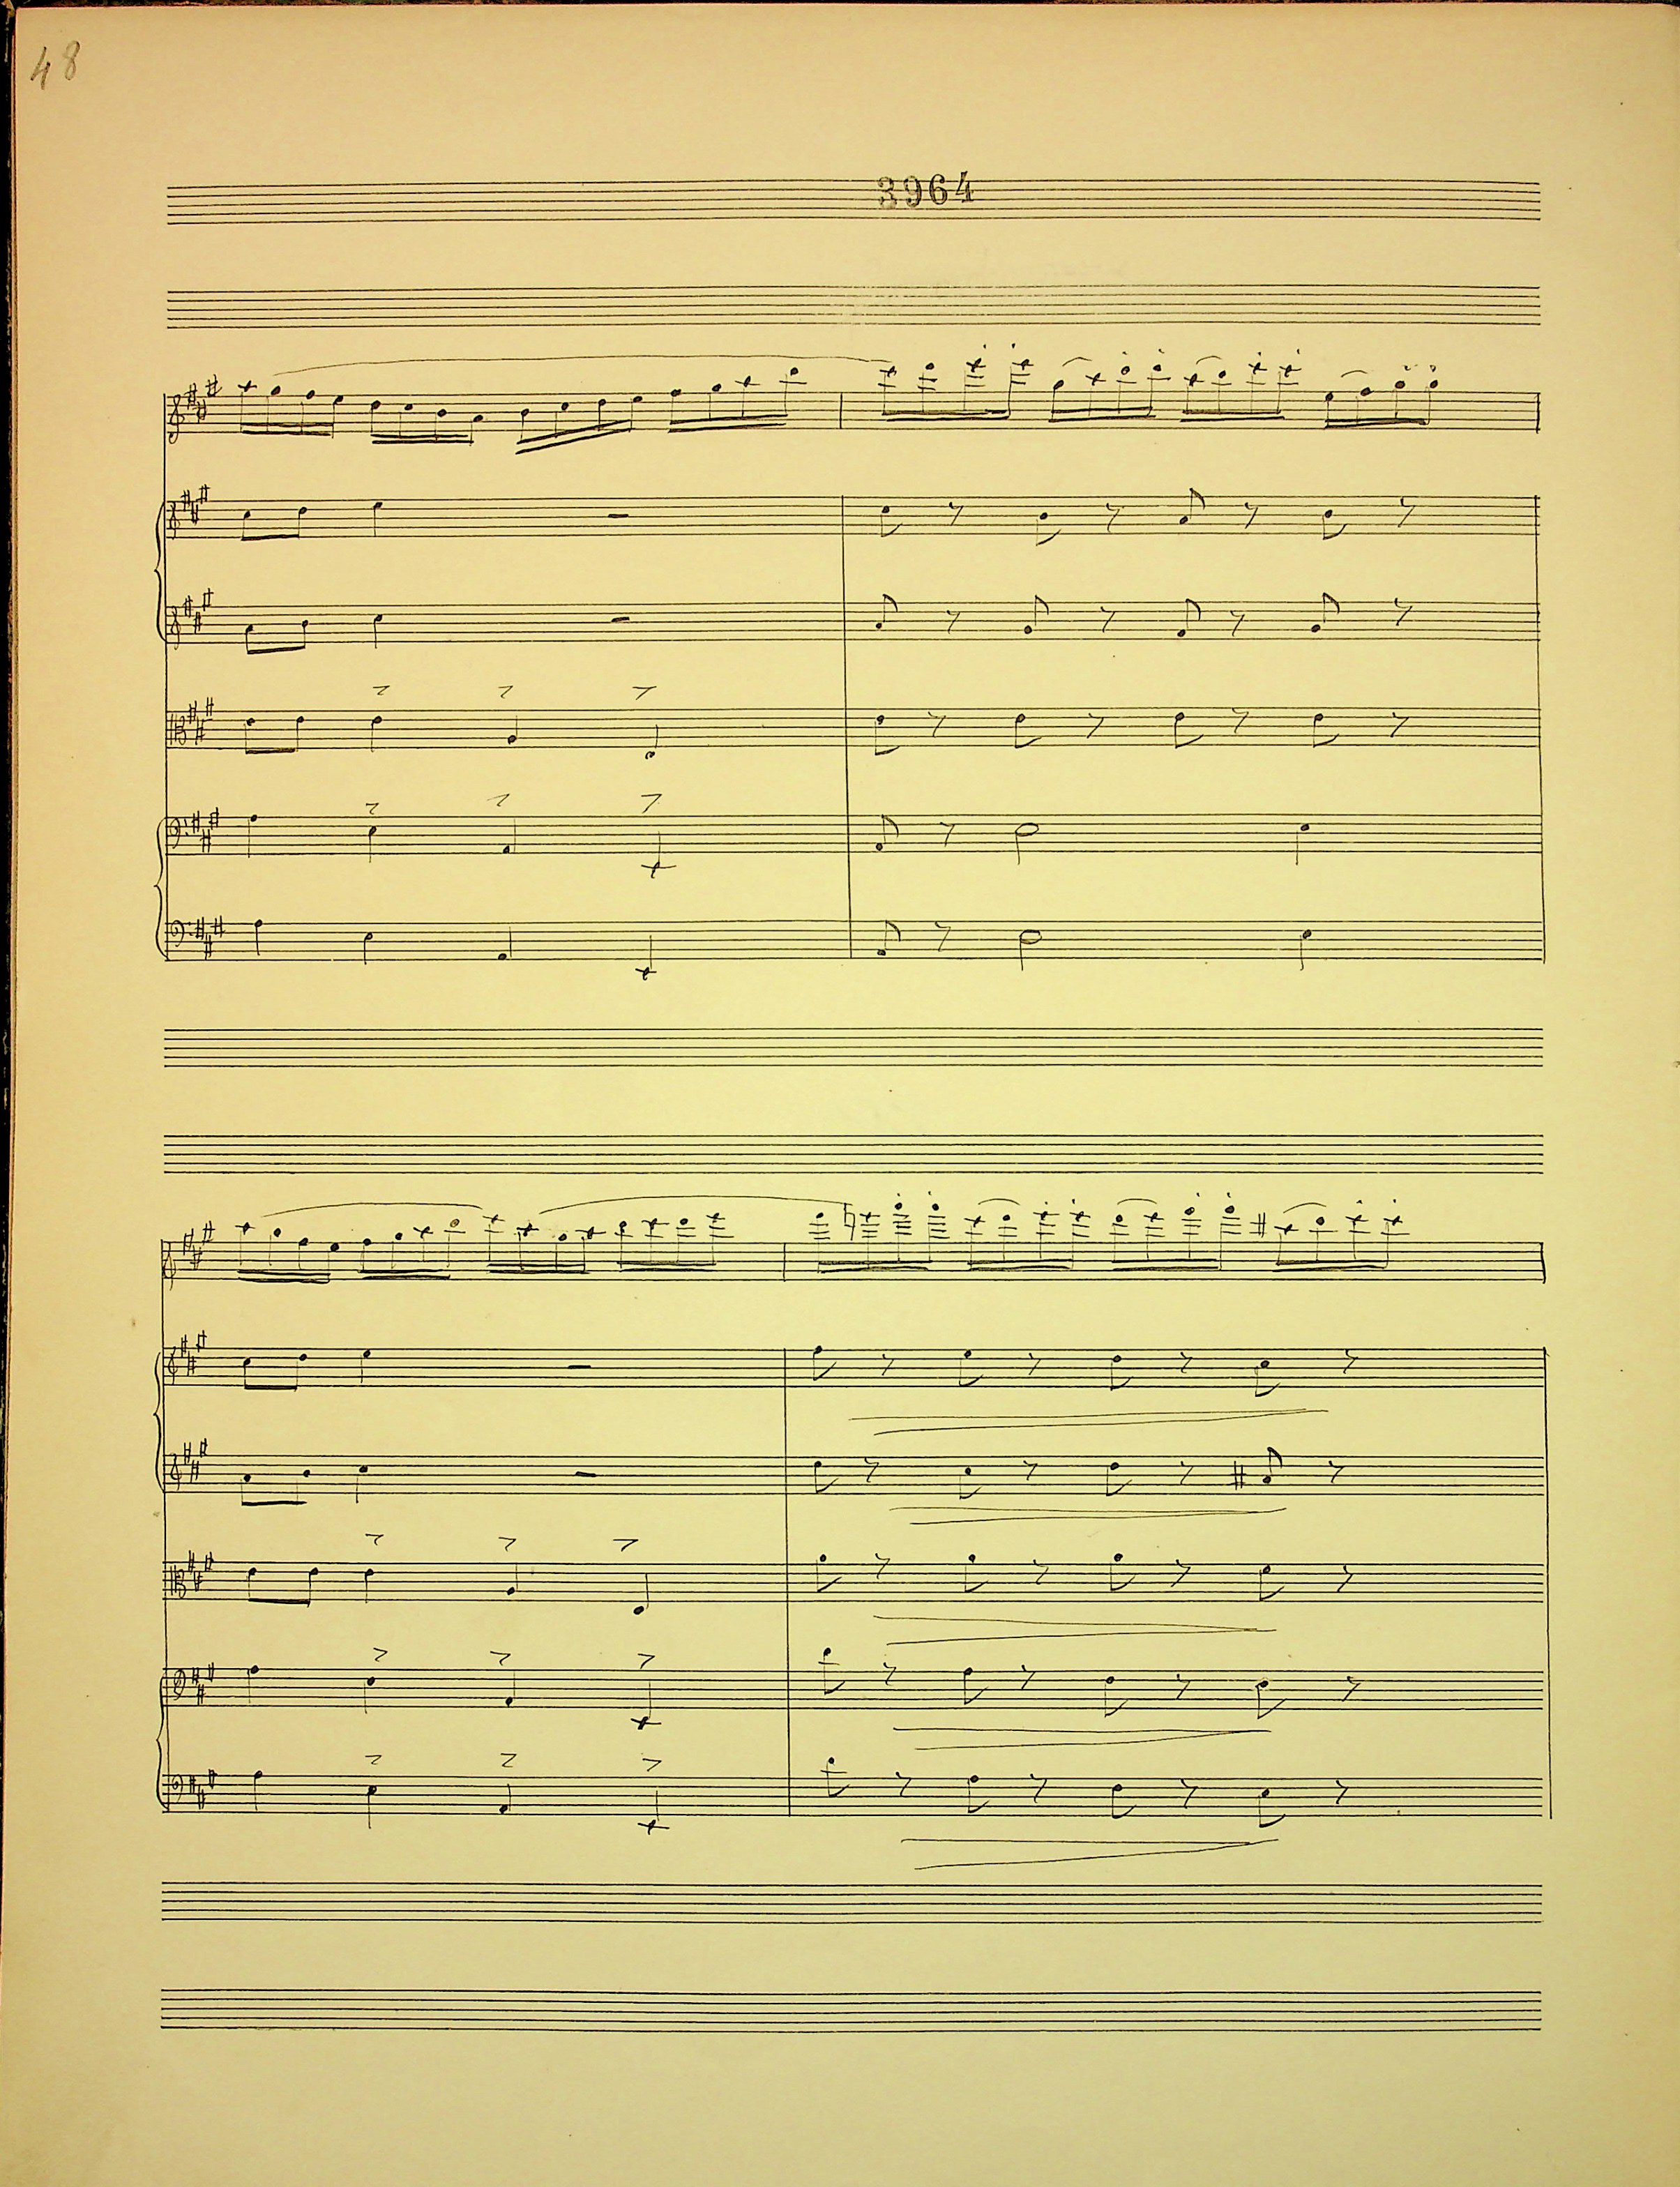 48
3964